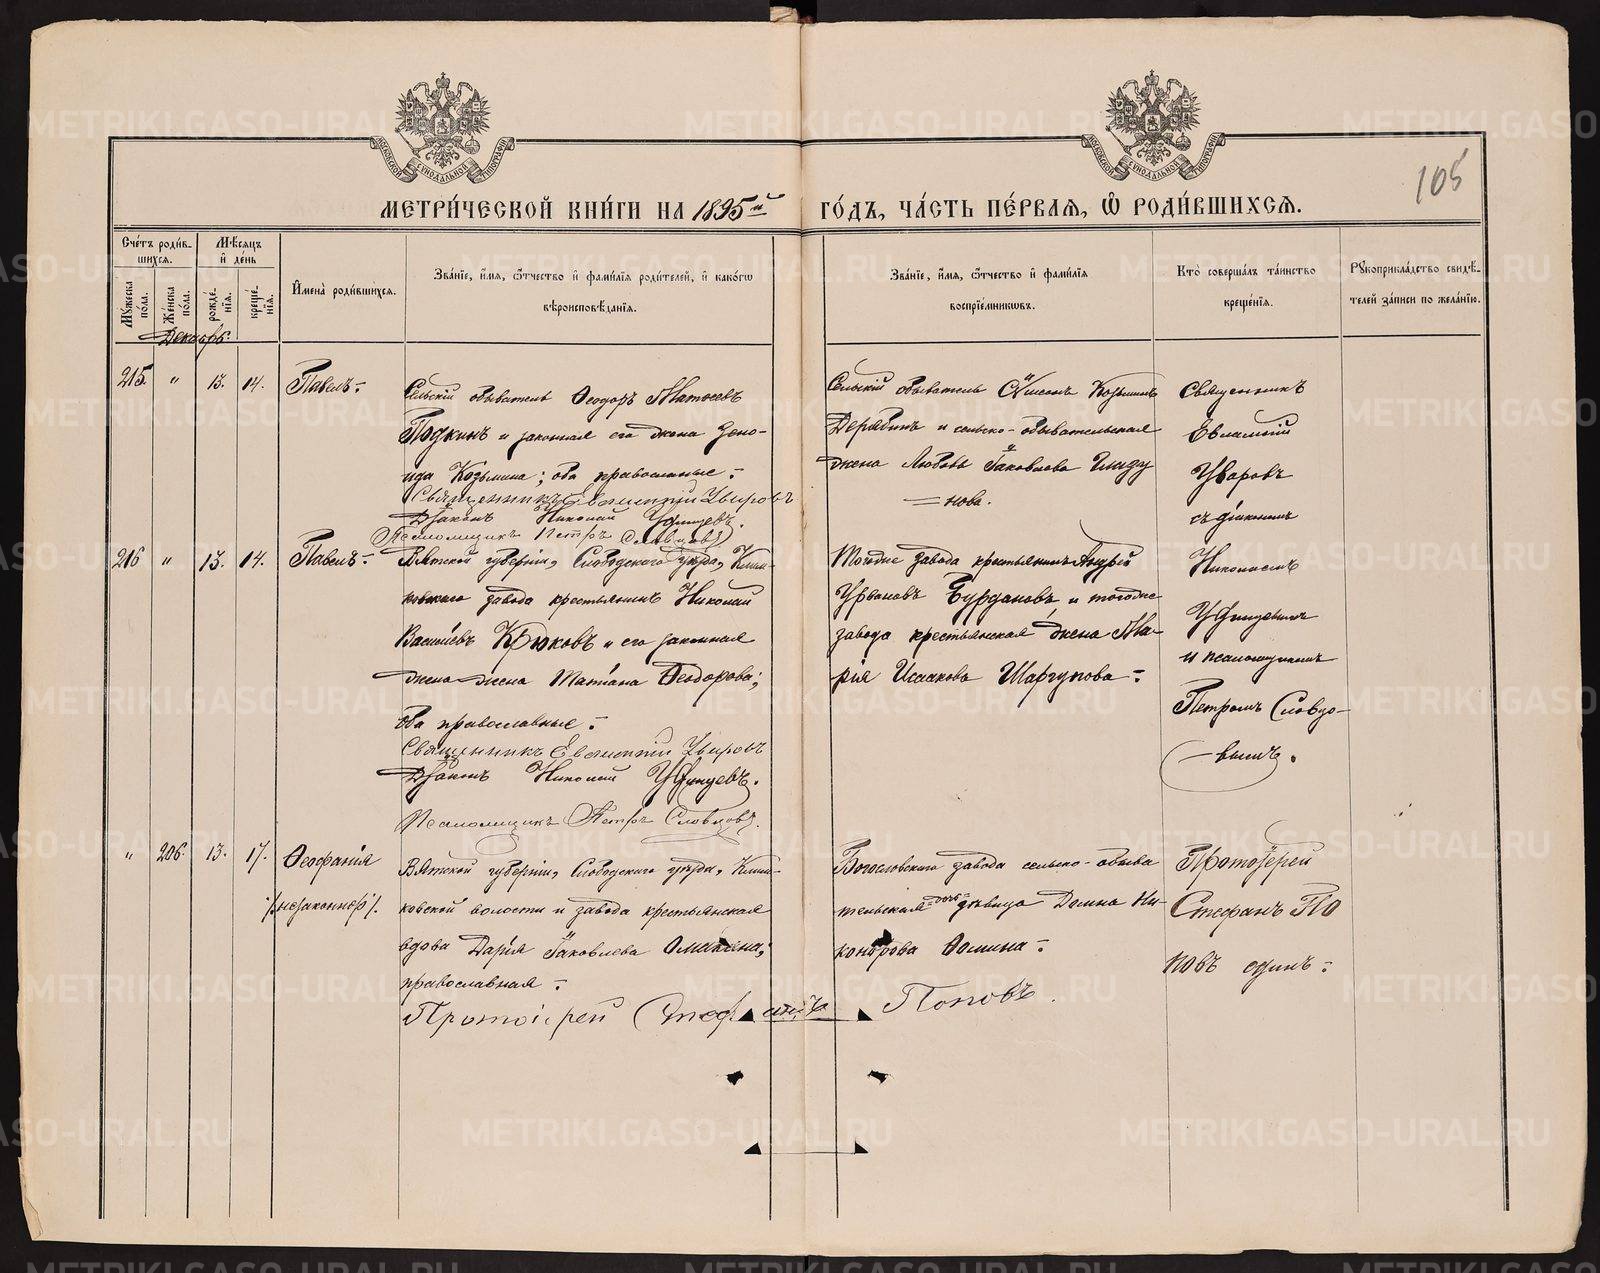 105
МЕТРИ́ЧЕСКОЙ КНИ́ГИ НА 1895й ГО́ДЪ, ЧА́СТЬ ПЕ́РВАЯ, Ѿ РОДИ́ВШИХСЯ.
Сче́тъ роди́в-
шихся.
Мѣ́сяцъ
и҆ де́нь
Мꙋжеска по́ла.
Же́нска по́ла.
рожде́нїѧ.
креще́нїѧ.
И҆мена̀ роди́вшихся.
Зва́нїе, и҆́мя, ѻ҆́тчество и҆ фами́лїѧ роди́телей, и҆ како́гѡ
вѣроисповѣ́данїѧ.
Зва́нїе, и҆́мя, ѻ҆́тчество и҆ фами́лїѧ
воспрїе́мникѡвъ.
Кто̀ соверша́лъ та́инство
креще́нїѧ.
Рꙋкоприкла́дство свидѣ́-
телей за́писи по жела́нїю.
Декабрь.
215. " 13. 14. Павелъ:
Сельскій обыватель Ѳеодоръ Матѳеевъ
и законная его жена Зено-
ида Козьмина; оба православные:
Священникъ Евлампій Уваровъ
Діаконъ Николай Уфинцевъ.
Псаломщикъ Петръ Словцовъ
Сельскій обыватель Козьминъ
Дерябинъ и сельско-обывательская
жена Любовь Іаковлева
нова.
Священникъ
Евлампій
Уваровъ
съ діакономъ
216 " 13. 14. Павелъ:
Вятской губерніи, Слободскаго уѣзда, Клим-
ковскаго завода крестьянинъ Николай
Василіевъ Крюковъ и его законная
жена жена Татіана Ѳеодорова;
оба православные:
Священникъ Евлампій Уваровъ
Діаконъ Николай Уфинцевъ.
Псаломщикъ Петръ Словцовъ.
Тогоже завода крестьянинъ Андрей
Урвановъ Бурдаковъ и тогоже
завода крестьянская жена Ма-
рія Исаакова Шаргунова:
Николаемъ
Уфинцевымъ
и псаломщикомъ
Петромъ Словцо-
вымъ.
" 206. 13. 17. Ѳеофанія
/незаконнор/.
Вятской губерніи, Слободскаго уѣзда, Клим-
ковской волости и завода крестьянская
вдова Дарія Іаковлева
православная:
Протоіерей Стефанъ Поповъ.
Богословскаго завода сельско-обыва
тельская дочь дѣвица Домна Ни-
конорова Ѳомина:
Протоіерей
Стефанъ По
повъ одинъ: